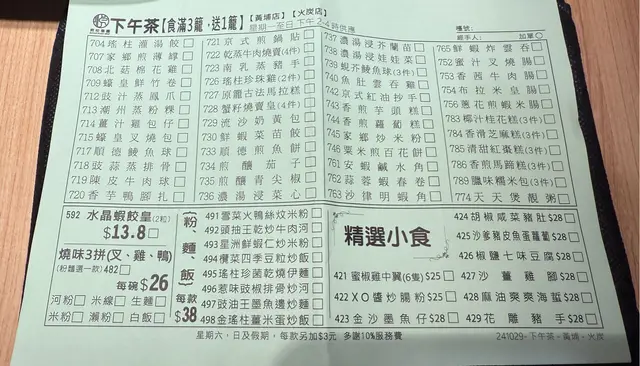 下午茶【食滿3籠·送1籠】【黃埔店】【火炭店】
星期一至日 下午 2-4 時供應
檯號:
經手人: 加單
704 瑤柱灌湯餃
707 家鄉煎薄罉
708 北菇棉花雞
709 蠔皇鮮竹卷
712 豉汁蒸鳳爪
713 潮州蒸粉粿
714 薑汁雞包仔
715 蠔皇叉燒包
717 順德鯪魚球
718 豉蒜蒸排骨
719 陳皮牛肉球
720 香芋鴨腳扎
721 京式煎鍋貼
722 乾蒸牛肉燒賣(4件)
723 南乳蒸豬手
726 瑤柱珍珠雞(2件)
727 原籠古法馬拉糕
728 蟹籽燒賣皇(4件)
729 流沙奶黃包
730 鮮蝦菜苗餃
733 順德煎魚餅
734 煎釀茄子
735 煎釀青尖椒
736 濃湯浸菜心
737 濃湯浸芥蘭苗
738 濃湯浸娃娃菜
739 蜆芥鯪魚球(3件)
740 魚肚雲吞雞
742 京式紅油抄手
743 香煎芋頭糕
744 香煎蘿蔔糕
745 家鄉炒米粉
746 粟米煎百花餅
761 安蝦鹹水角
762 蒜蓉蝦春卷
763 沙律明蝦角
765 鮮蝦炸雲吞
752 蜜汁叉燒腸
753 香茜牛肉腸
754 布拉米皇腸
756 蔥花煎蝦米腸
783 椰汁桂花糕(3件)
784 香滑芝麻糕(3件)
785 清甜紅棗糕(3件)
786 香煎馬蹄糕(3件)
789 臘味糯米包(3件)
774 天天煲靚粥
592 水晶蝦餃皇(2粒)
$13.8
燒味3拼(叉、雞、鴨)
(粉麵選一款) 482
每碗 $26
河粉 米線 生麵
米粉 瀨粉 白飯
(粉、麵、飯)
每款
$38
491 雪菜火鴨絲炆米粉
492 頭抽王乾炒牛肉河
493 星洲鮮蝦仁炒米粉
494 欖菜四季豆粒炒飯
495 瑤柱珍菌乾燒伊麵
496 惹味豉椒排骨炒河
497 豉油王墨魚邊炒麵
498 金瑤柱薑米蛋炒飯
精選小食
421 蜜椒雞中翼(6隻) $25
422 XO醬炒腸粉 $25
423 金沙墨魚仔 $28
424 胡椒咸菜豬肚 $28
425 沙爹豬皮魚蛋蘿蔔 $28
426 椒鹽七味豆腐 $28
427 沙薑雞腳 $28
428 麻油爽爽海蜇 $28
429 花雕豬手 $28
星期六,日及假期,每款另加$3元 多謝10%服務費
241029-下午茶-黃埔、火炭